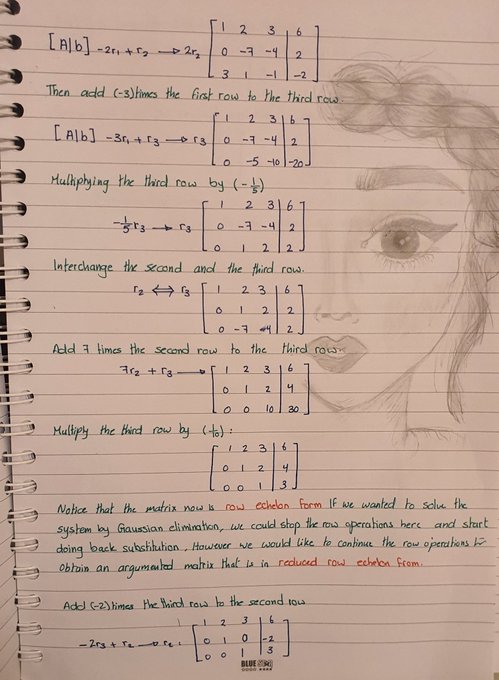 [A|b] -2r₁ + r₂ → 2r₂ [ 1 2 3 | 6
0 -7 -4 | 2
3 1 -1 | -2 ]
Then add (-3) times the first row to the third row.
[A|b] -3r₁ + r₃ → r₃ [ 1 2 3 | 6
0 -7 -4 | 2
0 -5 -10 | -20 ]
Multiplying the third row by (-1/5)
-1/5 r₃ → r₃ [ 1 2 3 | 6
0 -7 -4 | 2
0 1 2 | 2 ]
Interchange the second and the third row.
r₂ ⟺ r₃ [ 1 2 3 | 6
0 1 2 | 2
0 -7 -4 | 2 ]
Add 7 times the second row to the third row.
7r₂ + r₃ → [ 1 2 3 | 6
0 1 2 | 4
0 0 10 | 30 ]
Multiply the third row by (1/10) :
[ 1 2 3 | 6
0 1 2 | 4
0 0 1 | 3 ]
Notice that the matrix now is row echelon form If we wanted to solve the
system by Gaussian elimination, we could stop the row operations here and start
doing back substitution. However we would like to continue the row operations to
obtain an argumented matrix that is in reduced row echelon from.
Add (-2) times the third row to the second row
-2r₃ + r₂ → r₂ : [ 1 2 3 | 6
0 1 0 | -2
0 0 1 | 3 ]
BLUE